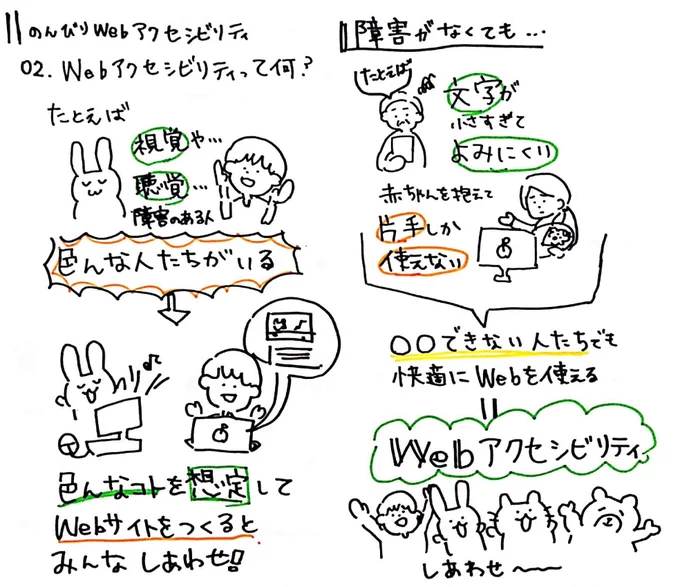 のんびりWebアクセシビリティ
02. Webアクセシビリティって何?
たとえば
視覚や…
聴覚…
障害のある人
色んな人たちがいる
色んなコトを想定して
Webサイトをつくると
みんなしあわせ!!
障害がなくても…
たとえば
文字が
小さすぎて
よみにくい
赤ちゃんを抱えて
片手しか
使えない
〇〇できない人たちでも
快適にWebを使える
=
Webアクセシビリティ
しあわせ〜〜